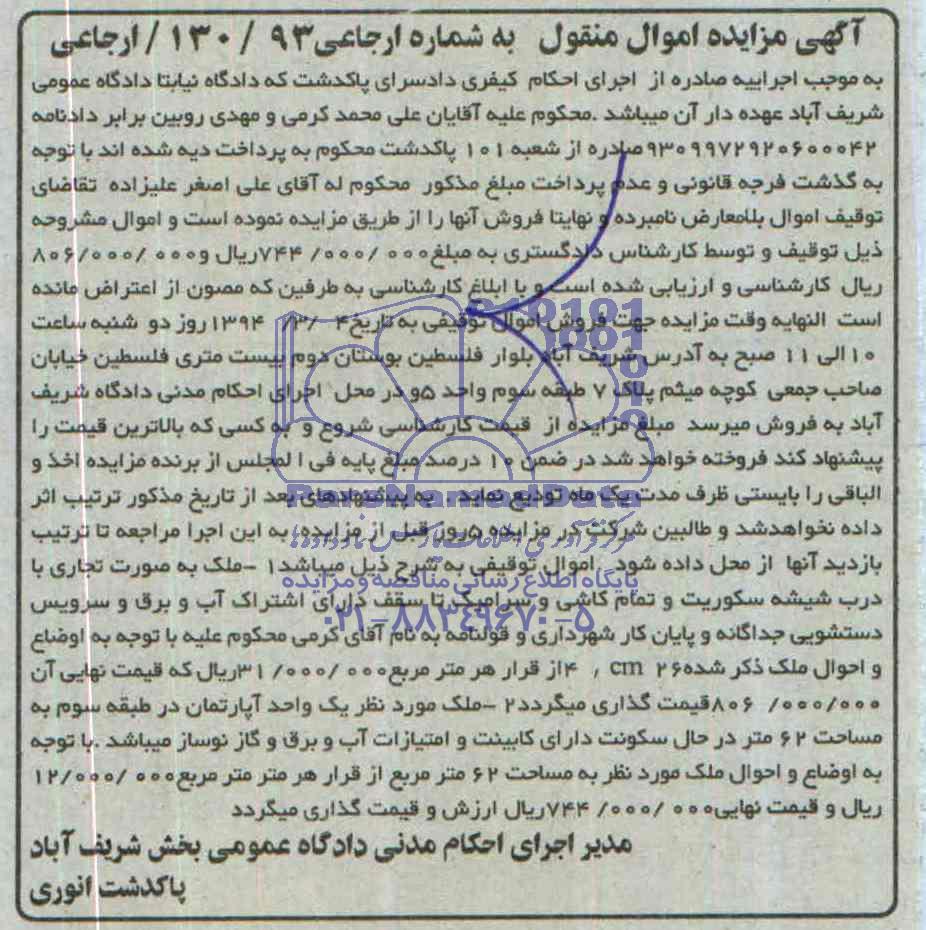 آگهی مزایده اموال منقول به شماره ارجاعی ۹۳ / ۱۳۰ / ارجاعی
به موجب اجراییه صادره از اجرای احکام کیفری دادسرای پاکدشت که دادگاه نیابتا دادگاه عمومی
شریف آباد عهده دار آن میباشد .محکوم علیه آقایان علی محمد کرمی و مهدی روبین برابر دادنامه
۹۳۰۹۹۷۲۹۲۰۶۰۰۰۴۲صادره از شعبه ۱۰۱ پاکدشت محکوم به پرداخت دیه شده اند با توجه
به گذشت فرجه قانونی و عدم پرداخت مبلغ مذکور محکوم له آقای علی اصغر علیزاده تقاضای
توقیف اموال بلامعارض نامبرده و نهایتا فروش آنها را از طریق مزایده نموده است و اموال مشروحه
ذیل توقیف و توسط کارشناس دادگستری به مبلغ۷۴۴/۰۰۰/۰۰۰ریال و۸۰۶/۰۰۰/۰۰۰
ریال کارشناسی و ارزیابی شده است و با ابلاغ کارشناسی به طرفین که مصون از اعتراض مانده
است النهایه وقت مزایده جهت فروش اموال توقیفی به تاریخ۴ /۳/ ۱۳۹۴روز دو شنبه ساعت
۱۰الی ۱۱ صبح به آدرس شریف آباد بلوار فلسطین بوستان دوم بیست متری فلسطین خیابان
صاحب جمعی کوچه میثم پلاک ۷ طبقه سوم واحد ۵و در محل اجرای احکام مدنی دادگاه شریف
آباد به فروش میرسد مبلغ مزایده از قیمت کارشناسی شروع و به کسی که بالاترین قیمت را
پیشنهاد کند فروخته خواهد شد در ضمن ۱۰ درصد مبلغ پایه فی ا لمجلس از برنده مزایده اخذ و
الباقی را بایستی ظرف مدت یک ماه تودیع نماید . به پیشنهادهای بعد از تاریخ مذکور ترتیب اثر
داده نخواهدشد و طالبین شرکت در مزایده ۵روز قبل از مزایده به این اجرا مراجعه تا ترتیب
بازدید آنها از محل داده شود .اموال توقیفی به شرح ذیل میباشد۱ -ملک به صورت تجاری با
درب شیشه سکوریت و تمام کاشی و سرامیک تا سقف دارای اشتراک آب و برق و سرویس
دستشویی جداگانه و پایان کار شهرداری و قولنامه به نام آقای کرمی محکوم علیه با توجه به اوضاع
و احوال ملک ذکر شده۲۶ cm , ۴از قرار هر متر مربع۳۱/۰۰۰/۰۰۰ریال که قیمت نهایی آن
۸۰۶/۰۰۰/۰۰۰قیمت گذاری میگردد۲ -ملک مورد نظر یک واحد آپارتمان در طبقه سوم به
مساحت ۶۲ متر در حال سکونت دارای کابینت و امتیازات آب و برق و گاز نوساز میباشد .با توجه
به اوضاع و احوال ملک مورد نظر به مساحت ۶۲ متر مربع از قرار هر متر متر مربع۱۲/۰۰۰/۰۰۰
ریال و قیمت نهایی۷۴۴/۰۰۰/۰۰۰ریال ارزش و قیمت گذاری میگردد
مدیر اجرای احکام مدنی دادگاه عمومی بخش شریف آباد
پاکدشت انوری
ParsNamadData
پایگاه اطلاع رسانی مناقصه و مزایده
۰۲۱-۸۸۳۴۹۶۷۰-۵